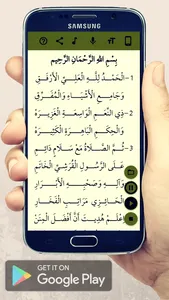 SAMSUNG
بِسْمِ اللهِ الرَّحْمَانِ الرَّحِيمِ
1 - الْحَمْدُ لِلَّهِ الْعَلِيِّ الْأَرْفَقِ
وَجَامِعِ الْأَشْيَاءِ وَالْمُفَرِّقِ
2 - ذِي النِّعَمِ الْوَاسِعَةِ الْغَزِيرَهْ
وَالْحِكَمِ الْبَاهِرَةِ الْكَثِيرَهْ
3 - ثُمَّ الصَّلَاةُ مَعْ سَلَامٍ دَائِمِ
عَلَى الرَّسُولِ الْقُرَشِيِّ الْخَاتَمِ
وَآلِهِ وَصَحْبِهِ الْأَبْرَارِ
الْحَائِزِي مَرَاتِبَ الْفَخَارِ
اعْلَمْ هُدِيتَ أَنَّ أَفْضَلَ الْمِنَنْ
GET IT ON
Google Play